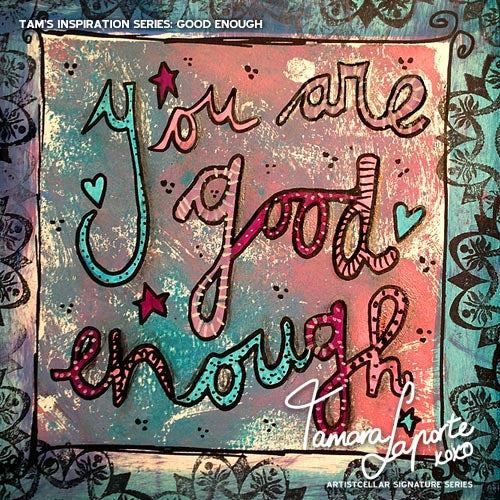 TAM'S INSPIRATION SERIES: GOOD ENOUGH
you are
good
enough
Tamara Laporte
xoxo
ARTISTCELLAR SIGNATURE SERIES